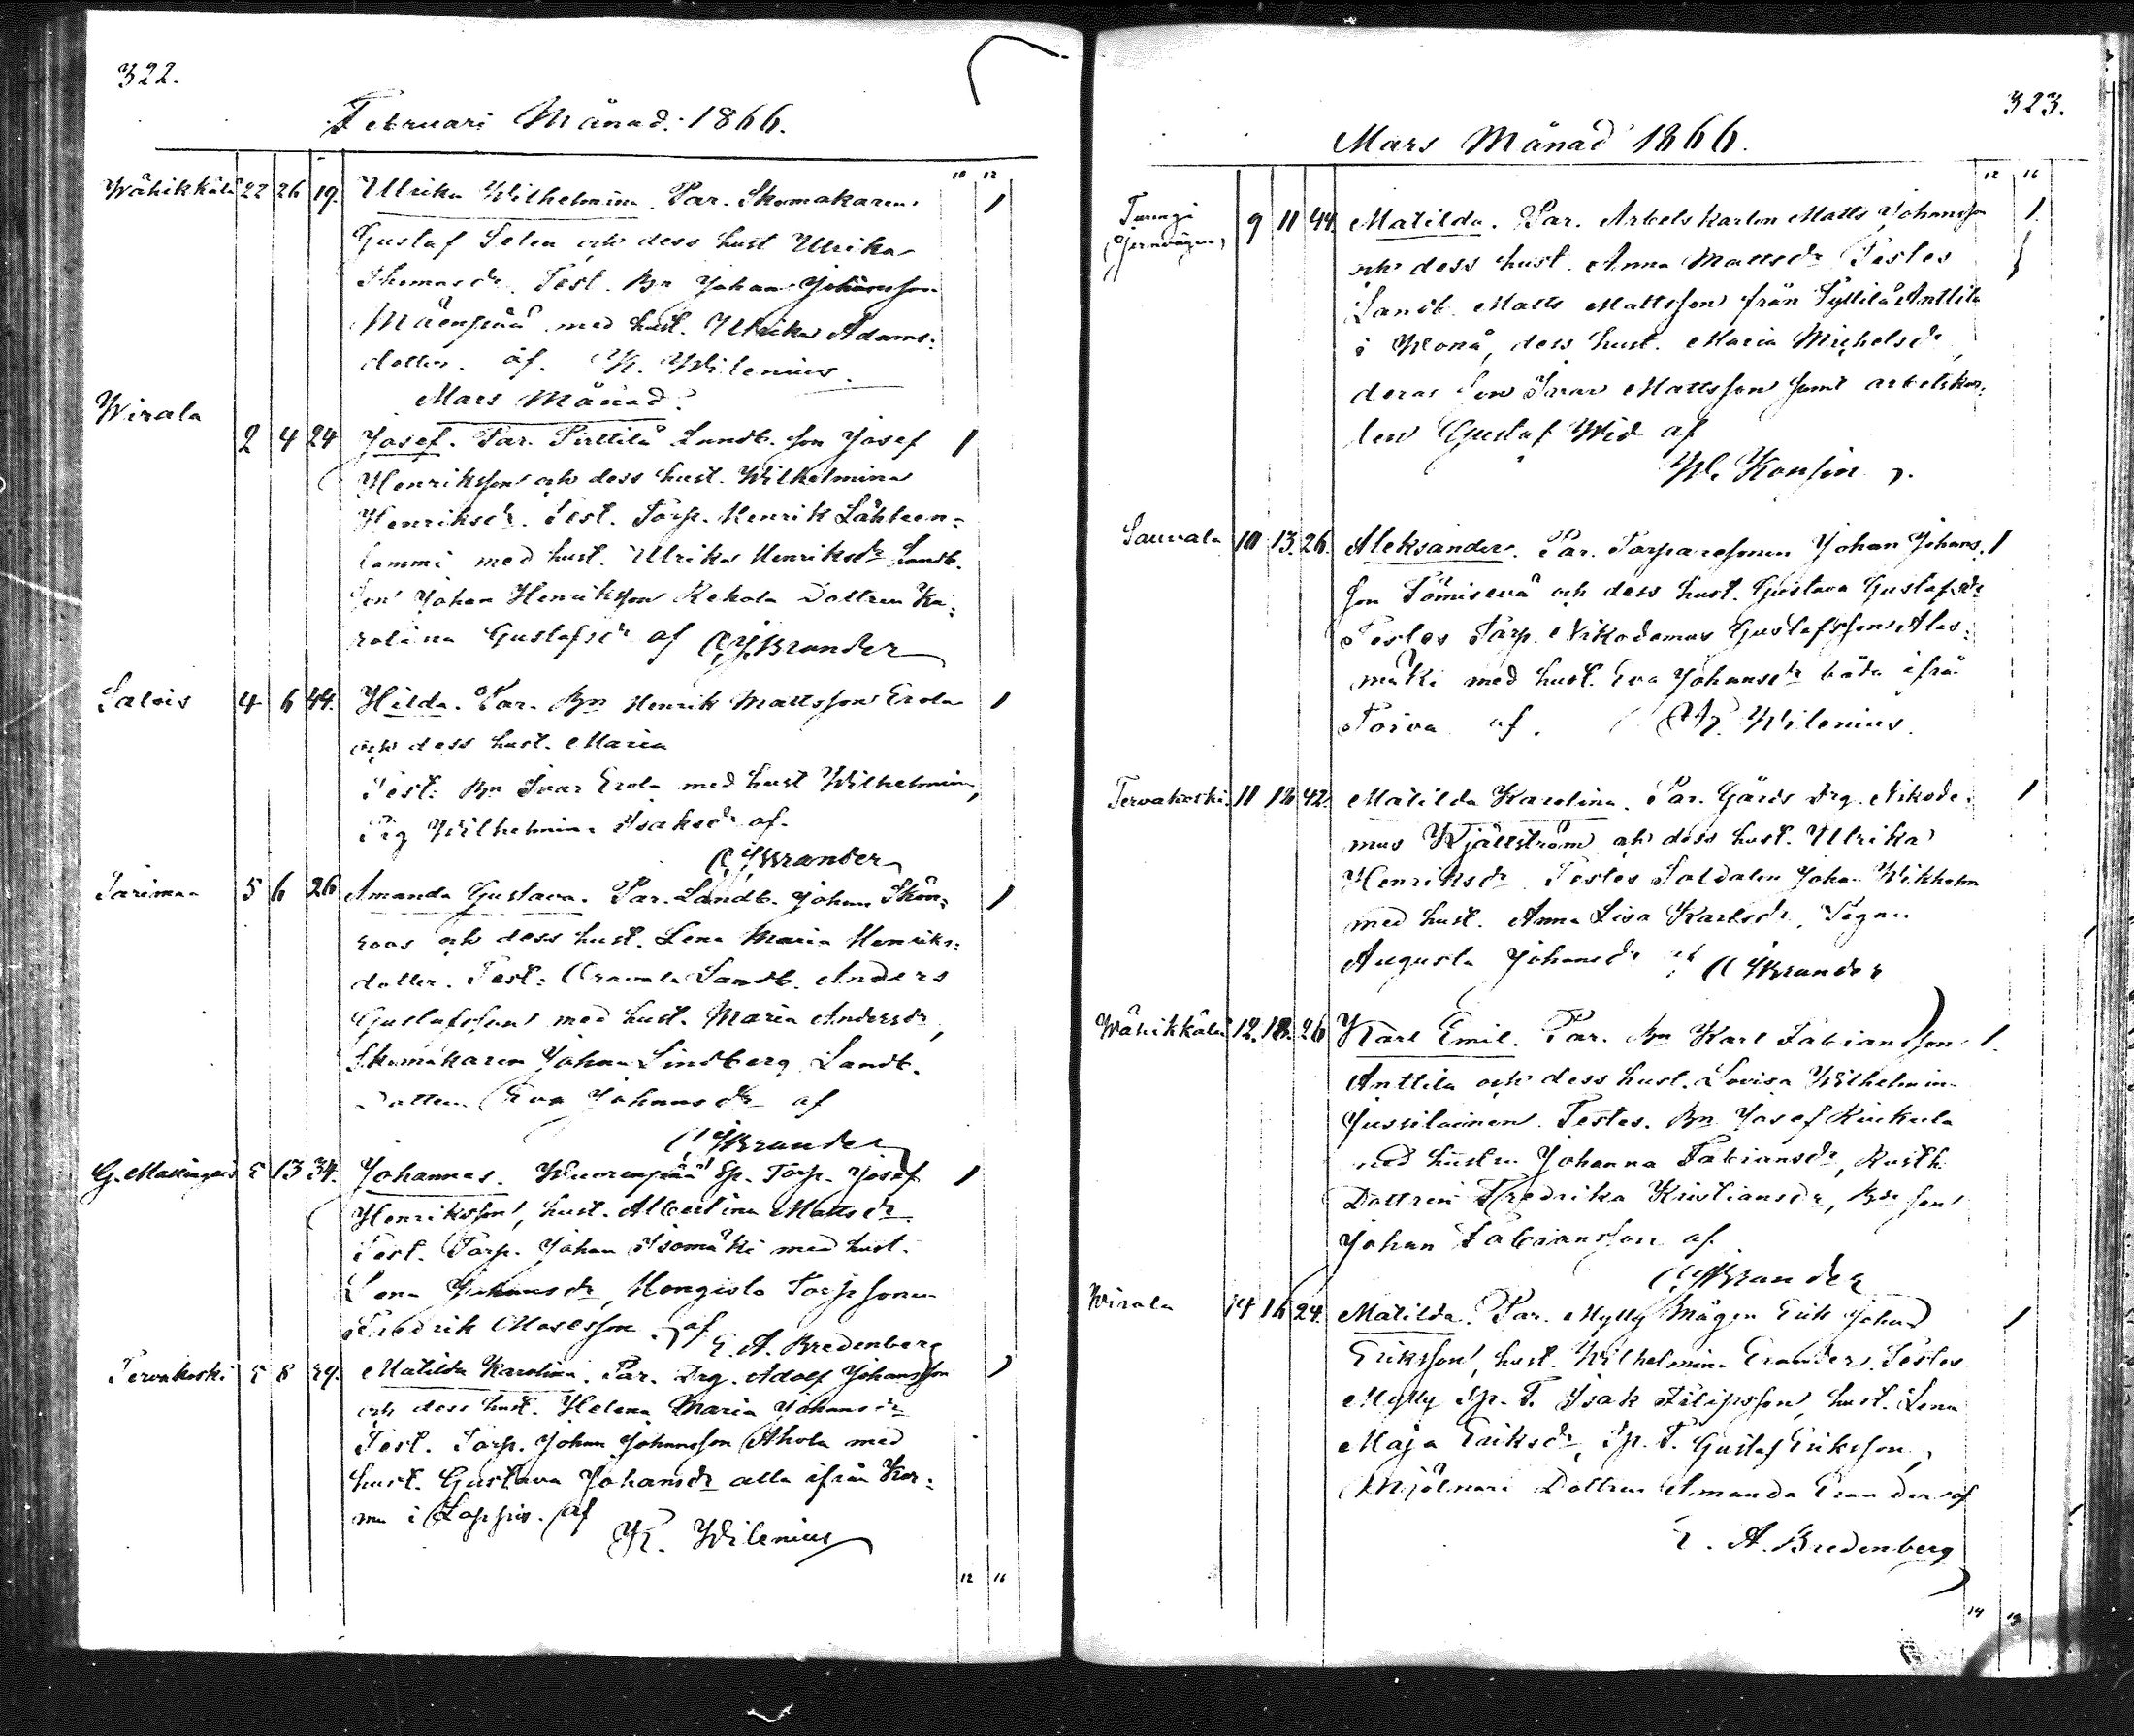 322.
Februari Månad. 1866.
10 12
Wähikkälä 22 26 19. Ulrika Wilhelmina. Par. Skomakaren
Gustaf Selen och dess hust Ulrika
Thomasdr. Test. Bn Johan Johansson
Mäenpää med hust. Ulrika Adams-
dotter. af. K. Wilenius.
Mars Månad.
Wirala 2 4 24 Josef. Par. Pirttilä Landb. son Josef 1
Henriksson och dess hust. Wilhelmina
Henriksdr. Test. Torp. Henrik Lähteen-
lammi med hust. Ulrika Henriksdr Landb.
Son Johan Henriksson Rekola Dottren Ka-
rolina Gustafsdr af Brander
Salois 4 6 44. Hilda. Par. Bn Henrik Mattsson Erola 1
och dess hust. Maria
Test: Bn Ivar Erola med hust Wilhelmina,
Pig Wilhelmina Isaksdr af.
Brander
5 6 26 Amanda Gustava. Par. Landb. Johan Skön- 1
roos och dess hust. Lena Maria Henriks-
dotter. Test: Landb. Anders
Gustafsson med hust. Maria Andersdr,
Skomakaren Johan Lindberg Landb.
Dottren Eva Johansdr af
Brander
13 34. Johannes. Wuorenpää Sp. Torp. Josef 1
Henriksson, hust. Albertina Mattsdr
Test. Torp. Johan Isomäki med hust.
Lena Johansdr, Hongisto Torpsonen
Fredrik Mosesson af E. A. Bredenberg
Tervakoski 5 8 Matilda Karolina. Par. Drg. Adolf Johansson 1
och dess hust. Helena Maria Johansdr
Test. Torp. Johan Johansson Ahola med
hust. Gustava Johansdr alla ifrån Kor-
mu i Loppis. af
K. Wilenius
12 16
323.
Mars Månad 1866.
12 16
Turengi
(Jernvägen) 9 11 44. Matilda. Par. Arbetskarlen Matts Johansson 1
och dess hust. Anna Mattsdr Testes
Landb. Matts Mattsson från Anttila
i dess hust. Maria Michelsdr,
deras Son Ivar Mattsson samt arbetskar-
len Gustaf Wid af
Konsin
Sauvala 10 13. 26. Aleksander. Par. Torparesonen Johan Johans- 1
son och dess hust. Gustava Gustafsdr
Testes Torp. Nikodemus Gustafsson Alas-
mäki med hust. Eva Johansdr båda ifrån
Toiva af. K. Wilenius.
Tervakoski 11 42. Matilda Karolina. Par. Gårds Drg. Nikode- 1
mus Kjällström och dess hust. Ulrika
Henriksdr Testes Soldaten Johan Wikholm
med hust. Anna Lisa Karlsdr, Pigan
Augusta Johansdr af Brander
Wähikkälä 12. 18. 26 Karl Emil. Par. Bn Karl Fabiansson 1.
Anttila och dess hust. Lovisa Wilhelmina
Jussilainen. Testes. Bn Josef
med hustru Johanna Fabiansdr, Rusth.
Dottren Fredrika Kristiansdr, Bde son
Johan Fabiansson af.
Brander
Wirala 14 16 24. Matilda. Par. Mylly Mågen Erik Johan 1
Eriksson, hust. Wilhelmina Erander. Testes
Mylly Sp. T. Isak Filipsson, hust. Lena
Maja Eriksdr, Sp. T. Gustaf Eriksson,
Mjölnare Dottren Amanda Erander af
E. A. Bredenberg
14